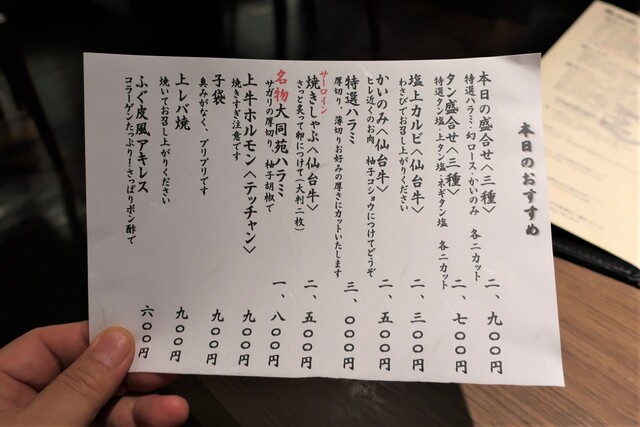 本日のおすすめ
本日の盛合せ〈三種〉 二、九〇〇円
特選ハラミ・幻ロース・かいのみ 各二カット
タン盛合せ〈三種〉 二、七〇〇円
特選タン塩・上タン塩・ネギタン塩 各二カット
塩上カルビ〈仙台牛〉 二、三〇〇円
わさびでお召し上がりください
かいのみ〈仙台牛〉 二、五〇〇円
ヒレ近くのお肉 柚子コショウにつけてどうぞ
特選ハラミ 三、〇〇〇円
厚切り、薄切りお好みの厚さにカットいたします
サーロイン
焼きしゃぶ〈仙台牛〉 二、五〇〇円
さっと炙って卵につけて(大判二枚)
名物大同苑ハラミ 一、八〇〇円
サガリの厚切り、柚子胡椒で
上牛ホルモン〈テッチャン〉 九〇〇円
焼きすぎ注意です
子袋 九〇〇円
臭みがなく、プリプリです
上レバ焼 九〇〇円
焼いてお召し上がりください
ふぐ皮風アキレス 六〇〇円
コラーゲンたっぷり!さっぱりポン酢で